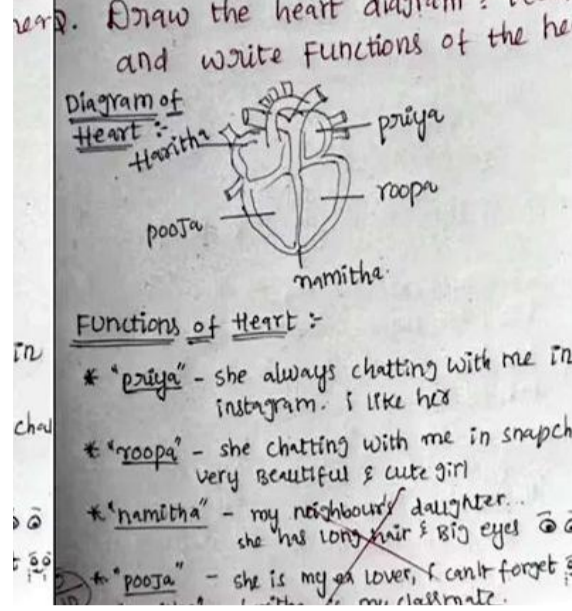 Draw the heart diagram
and write Functions of the
Diagram of
Heart :-
Haritha
priya
roopa
pooja
namitha.
Functions of Heart :-
* "priya" - she always chatting with me in
instagram. i like her
* "roopa" - she chatting with me in snapch
very Beautiful & cute girl
* "namitha" - my neighbour's daughter..
she has long hair & Big eyes
* "pooja" - she is my ex lover, I can't forget
my classmate.